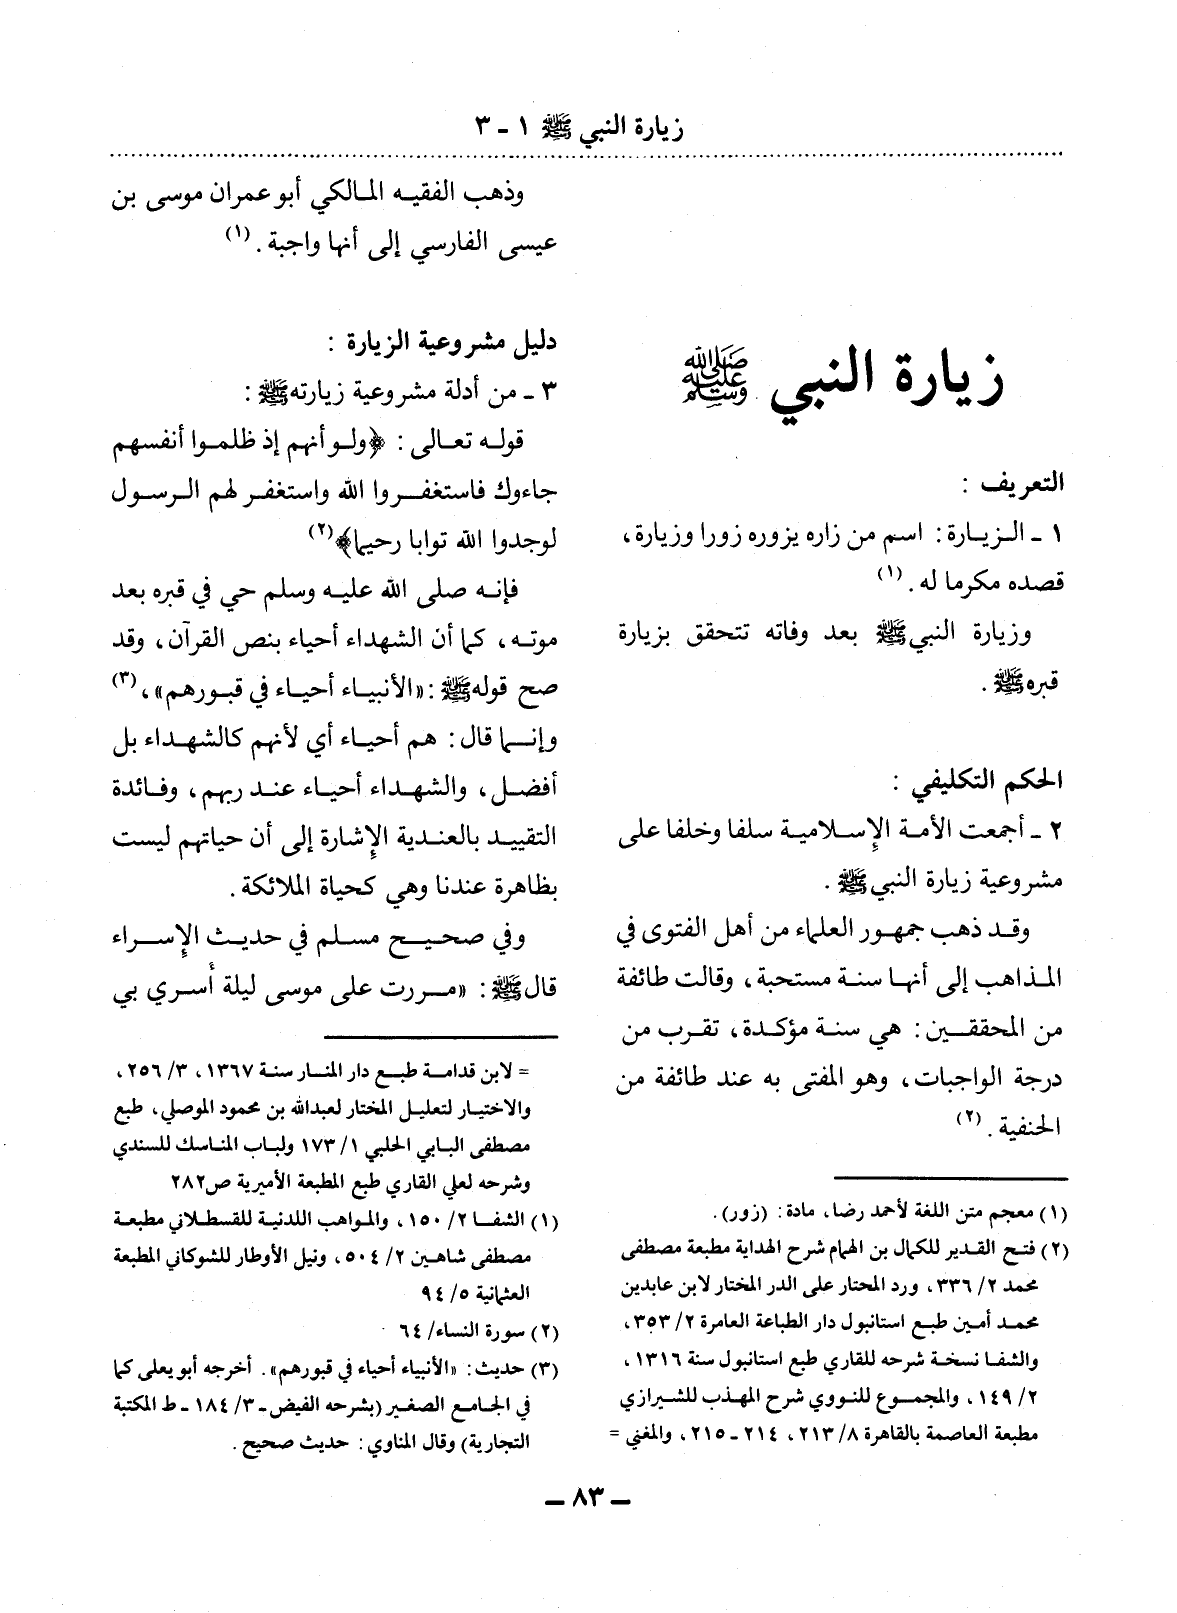 زيارة النبي ﷺ ١ - ٣
زيارة النبي ﷺ
التعريف :
١ - الـزيـارة : اسم من زاره يزوره زورا وزيارة ،
قصده مكرما له . (١)
وزيارة النبي ﷺ بعد وفاته تتحقق بزيارة
قبره ﷺ .
الحكم التكليفي :
٢ - أجمعت الأمـة الإسـلاميـة سلفا وخلفا على
مشروعية زيارة النبي ﷺ .
وقـد ذهب جمهـور العلماء من أهل الفتوى في
المـذاهب إلى أنهـا سنـة مستحبة ، وقالت طائفة
من المحققـين : هي سنة مؤكدة ، تقرب من
درجة الواجبات ، وهو المفتى به عند طائفة من
الحنفية . (٢)
(١) معجم متن اللغة لأحمد رضا ، مادة : (زور) .
(٢) فتـح القدير للكمال بن الهمام شرح الهداية مطبعة مصطفى
محمد ٢/ ٣٣٦ ، ورد المحتار على الدر المختار لابن عابدين
محمـد أمـين طبـع استانبول دار الطباعة العامرة ٢/ ٣٥٣ ،
والشفـا نسخـة شرحه للقاري طبع استانبول سنة ١٣١٦ ،
٢/ ١٤٩ ، والمجمـوع للنـووي شرح المهذب للشيرازي
مطبعة العاصمة بالقاهرة ٨/ ٢١٣ ، ٢١٤ - ٢١٥ ، والمغني =
وذهب الفقيـه المـالكي أبو عمران موسى بن
عيسى الفارسي إلى أنها واجبة . (١)
دليل مشروعية الزيارة :
٣ - من أدلة مشروعية زيارته ﷺ :
قولـه تعـالى : ﴿ولـو أنهم إذ ظلمـوا أنفسهم
جاءوك فاستغفـروا الله واستغفـر لهم الـرسـول
لوجدوا الله توابا رحيما﴾ (٢)
فإنـه صلى الله عليـه وسلم حي في قبره بعد
موتـه ، كما أن الشهداء أحياء بنص القرآن ، وقد
صح قوله ﷺ : «الأنبيـاء أحيـاء في قبـورهم» ، (٣)
وإنـما قال : هم أحيـاء أي لأنهم كالشهـداء بل
أفضـل ، والشهـداء أحيـاء عنـد ربهم ، وفـائدة
التقييـد بالعنـدية الإشارة إلى أن حياتهم ليست
بظاهرة عندنا وهي كحياة الملائكة .
وفي صحيـح مسـلم في حديـث الإسـراء
قال ﷺ : «مـررت على موسى ليلة أُسري بي
= لابن قدامـة طبـع دار المنـار سنـة ١٣٦٧ ، ٣/ ٢٥٦ ،
والاختيـار لتعليـل المختار لعبدالله بن محمود الموصلي ، طبع
مصطفى البـابي الحلبي ١/ ١٧٣ ولبـاب المنـاسك للسندي
وشرحه لعلي القاري طبع المطبعة الأميرية ص٢٨٢
(١) الشفـا ٢/ ١٥٠ ، والمـواهب اللدنيـة للقسطـلاني مطبعـة
مصطفى شاهـين ٢/ ٥٠٤ ، ونيل الأوطار للشوكاني المطبعة
العثمانية ٥/ ٩٤
(٢) سورة النساء/ ٦٤
(٣) حديث : «الأنبياء أحياء في قبورهم» . أخرجه أبو يعلى كما
في الجامع الصغير (بشرحه الفيض - ٣/ ١٨٤ - ط المكتبة
التجارية) وقال المناوي : حديث صحيح .
ـ ٨٣ ـ